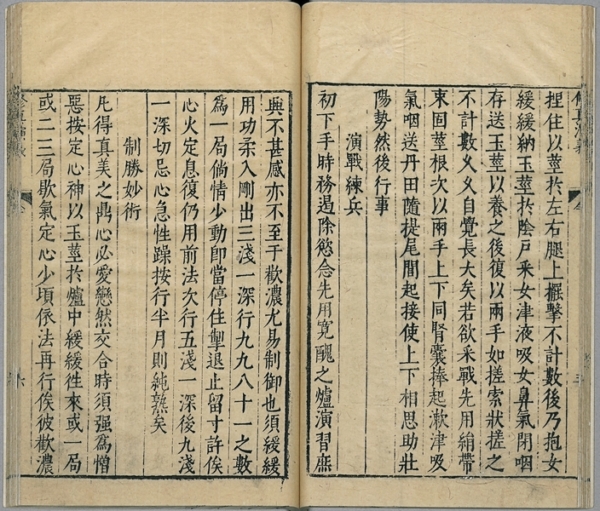 修真演義
捏住以莖扵左右腿上擺擊不計數後乃抱女
緩緩納玉莖扵陰戶采女津液吸女鼻氣閉咽
存送玉莖以養之後復以兩手如搓索狀搓之
不計數乂乂自覺長大矣若欲采戰先用絹帶
束固莖根次以兩手上下同腎囊捧起漱津吸
氣咽送丹田隨提尾閭起接使上下相思助壯
陽勢然後行事
演戰練兵
初下手時務遏除慾念先用寬醜之爐演習庶
與不甚感亦不至于歡濃尤易制御也須緩緩
用功柔入剛出三淺一深行九九八十一之數
爲一局倘情少動即當停住掣退止留寸許俟
心火定息復仍用前法次行五淺一深後九淺
一深切忌心急性躁按行半月則純熟矣
制勝妙術
凡得真美之鼎心必愛戀然交合時須强爲憎
惡按定心神以玉莖扵爐中緩緩徃來或一局
或二三局歇氣定心少頃依法再行俟彼歡濃
六